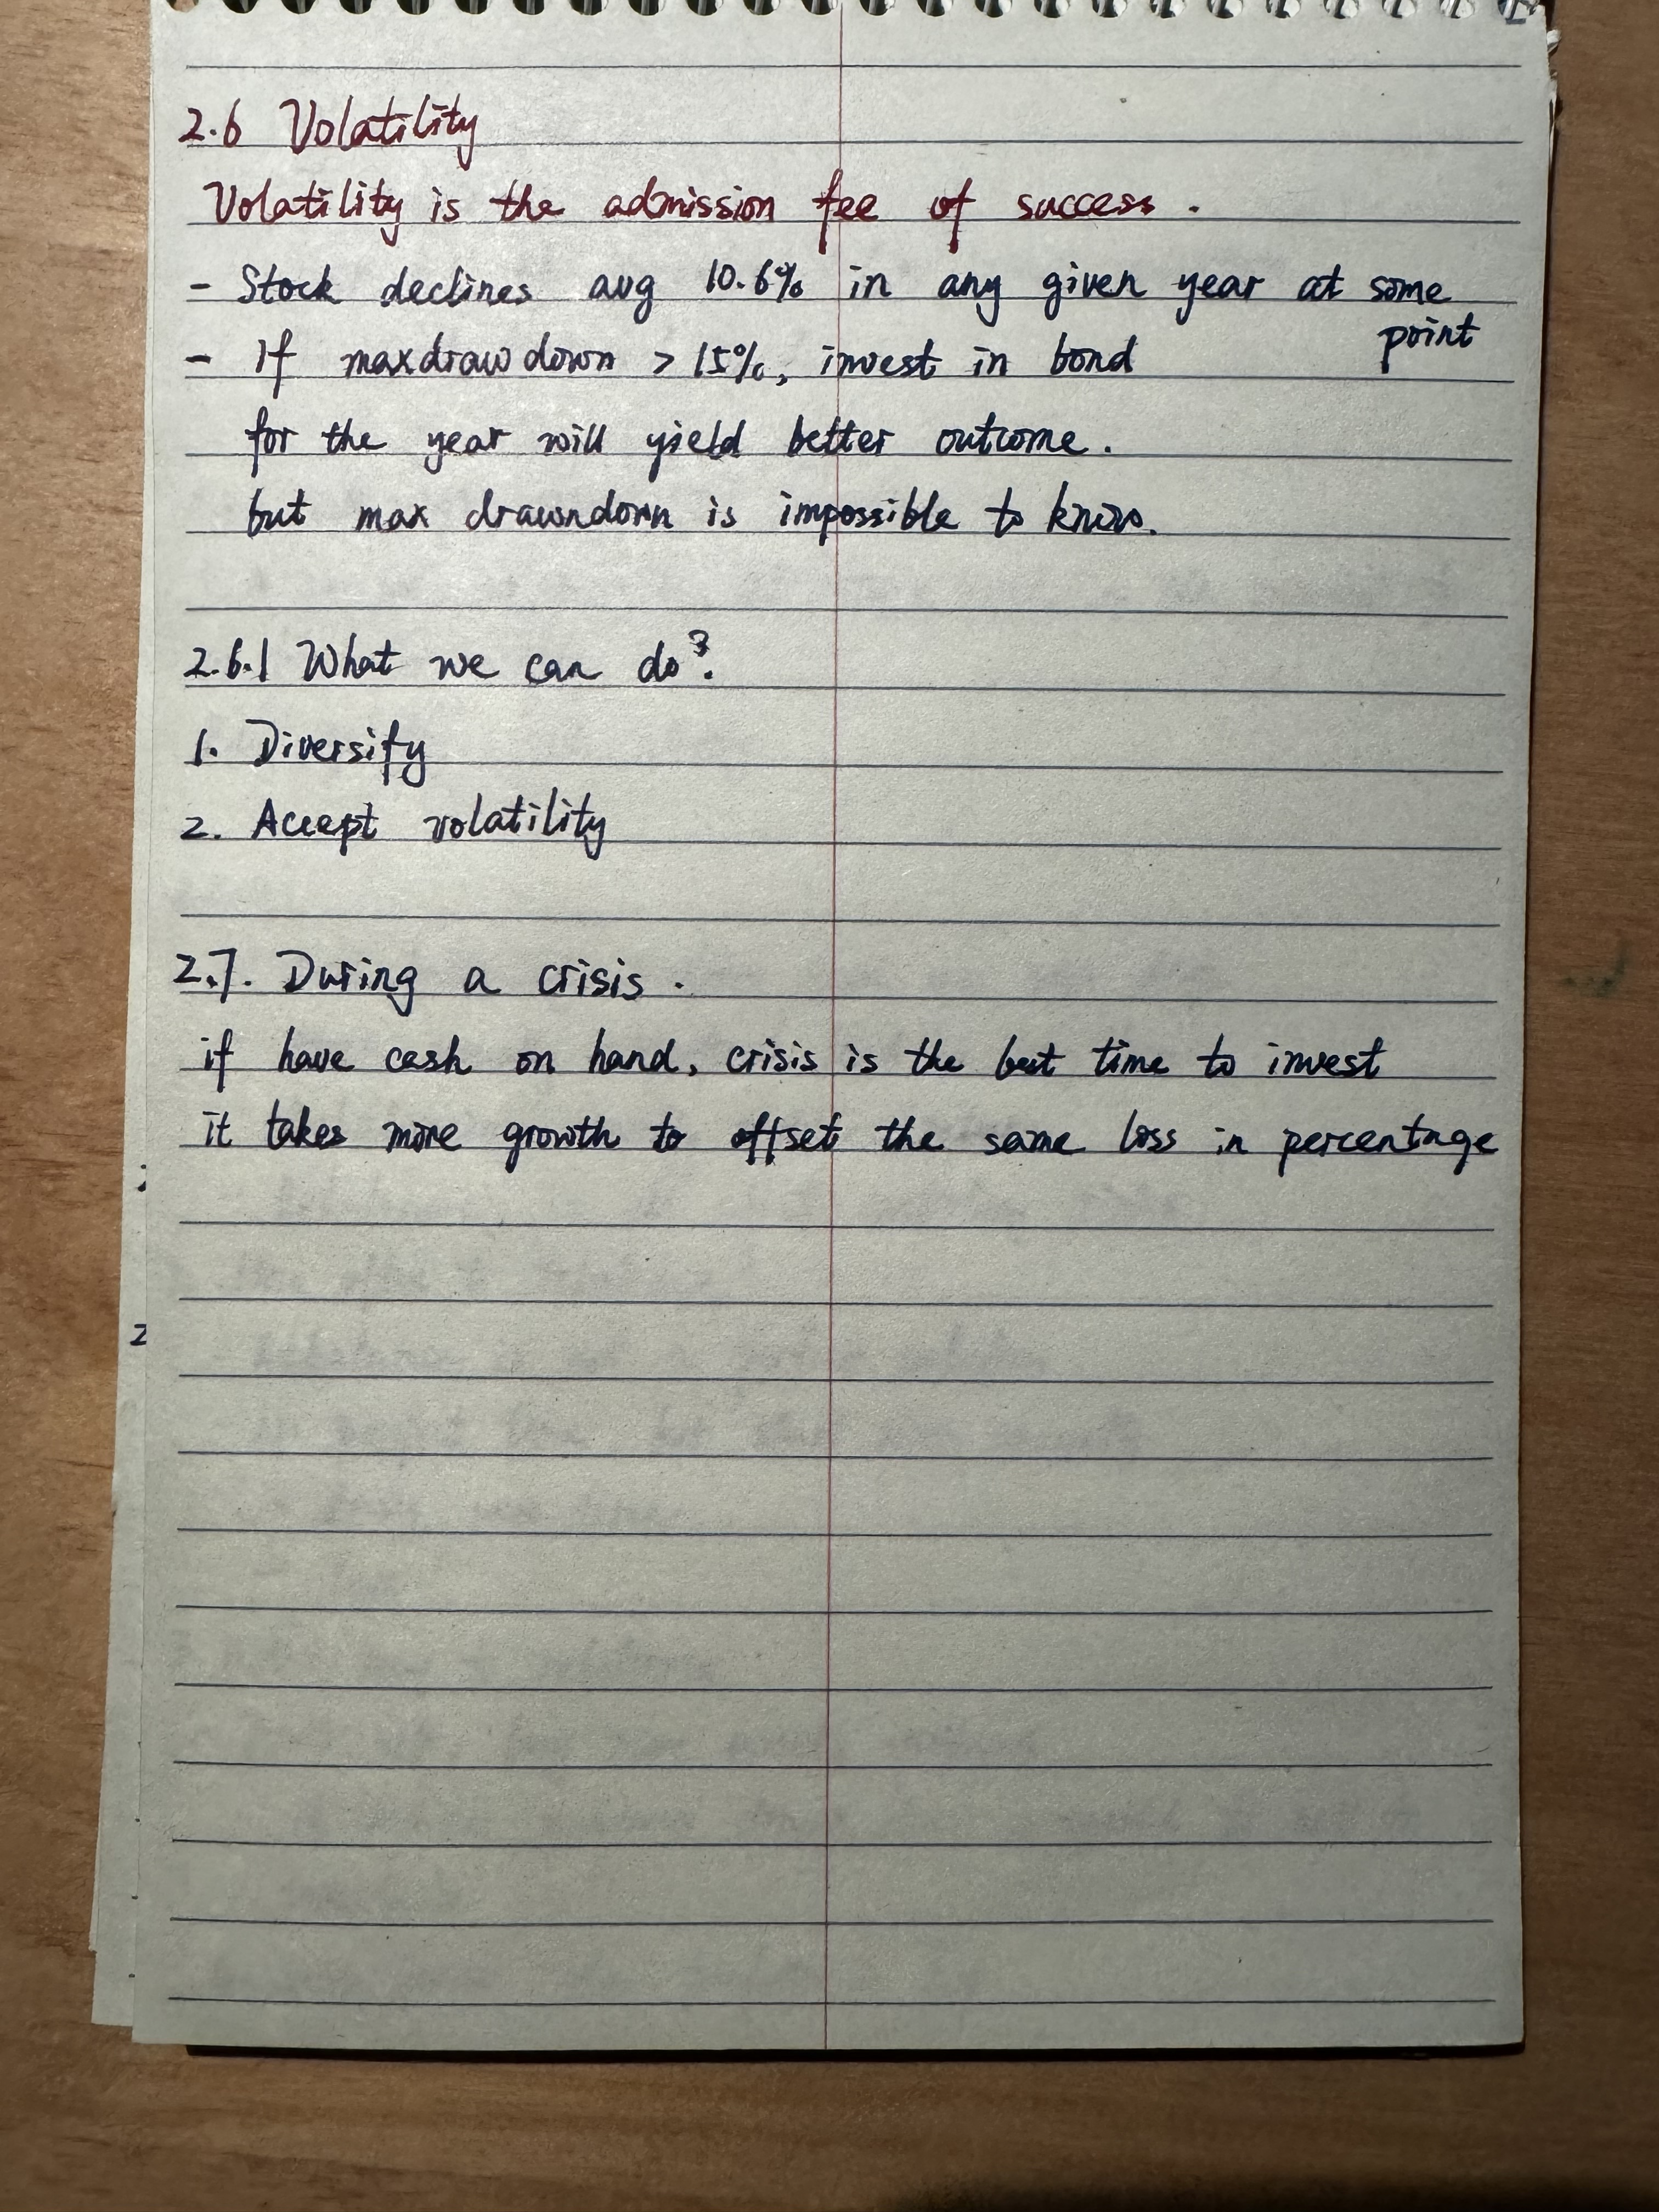 2.6 Volatility
Volatility is the admission fee of success.
- Stock declines avg 10.6% in any given year at some
point
- If maxdrawdown > 15%, invest in bond
for the year will yield better outcome.
but max drawndown is impossible to know.
2.6.1 What we can do?
1. Diversify
2. Accept volatility
2.7. During a crisis.
if have cash on hand, crisis is the best time to invest
it takes more growth to offset the same loss in percentage
2